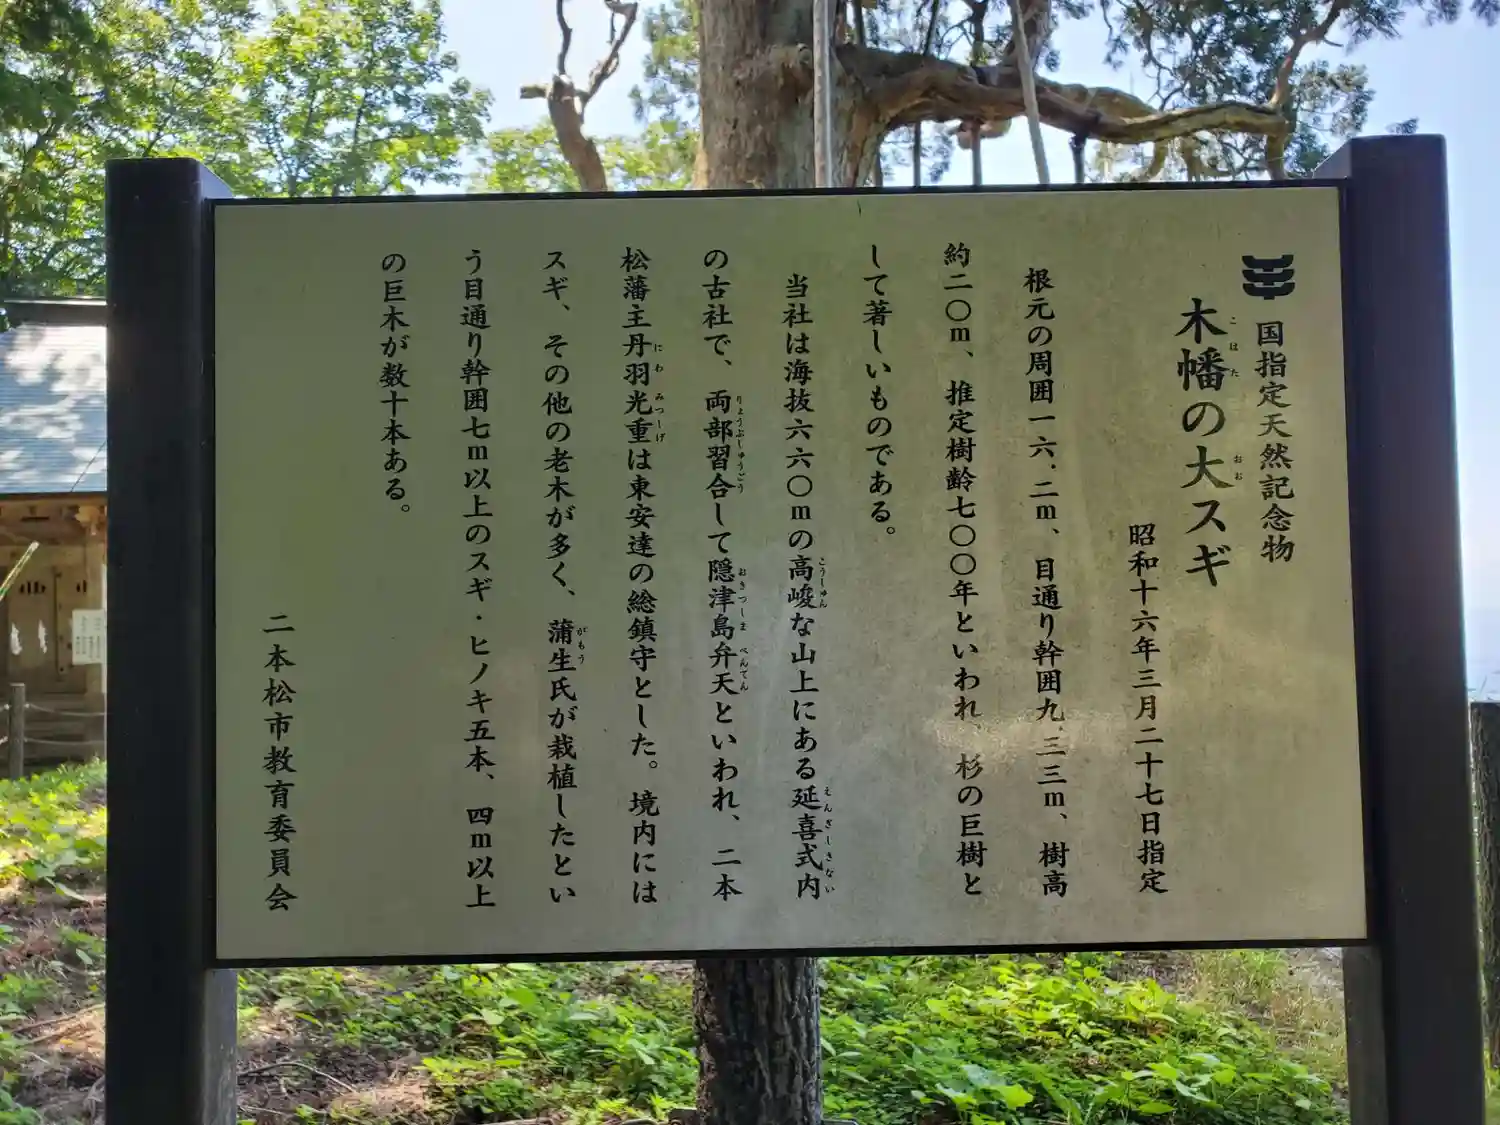 国指定天然記念物
木幡の大スギ
こはた
おお
昭和十六年三月二十七日指定
根元の周囲一六.二m、目通り幹囲九.三三m、樹高
約二〇m、推定樹齢七〇〇年といわれ、杉の巨樹と
して著しいものである。
当社は海抜六六〇mの高峻な山上にある延喜式内
こうしゅん
えんぎしきない
の古社で、両部習合して隠津島弁天といわれ、二本
りょうぶしゅうごう
おきつしま
べんてん
松藩主丹羽光重は東安達の総鎮守とした。境内には
にわ
みつしげ
スギ、その他の老木が多く、蒲生氏が栽植したとい
がもう
う目通り幹囲七m以上のスギ・ヒノキ五本、四m以上
の巨木が数十本ある。
二本松市教育委員会